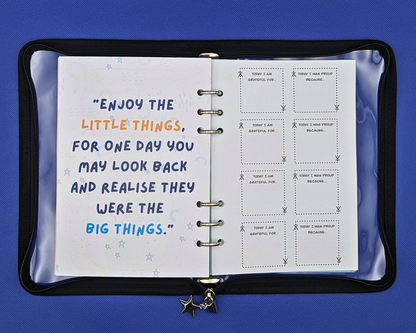 "ENJOY THE
LITTLE THINGS,
FOR ONE DAY YOU
MAY LOOK BACK
AND REALISE THEY
WERE THE
BIG THINGS."
TODAY I AM
GRATEFUL FOR..
TODAY I WAS PROUD
BECAUSE..
TODAY I AM
GRATEFUL FOR..
TODAY I WAS PROUD
BECAUSE..
TODAY I AM
GRATEFUL FOR..
TODAY I WAS PROUD
BECAUSE..
TODAY I AM
GRATEFUL FOR..
TODAY I WAS PROUD
BECAUSE..